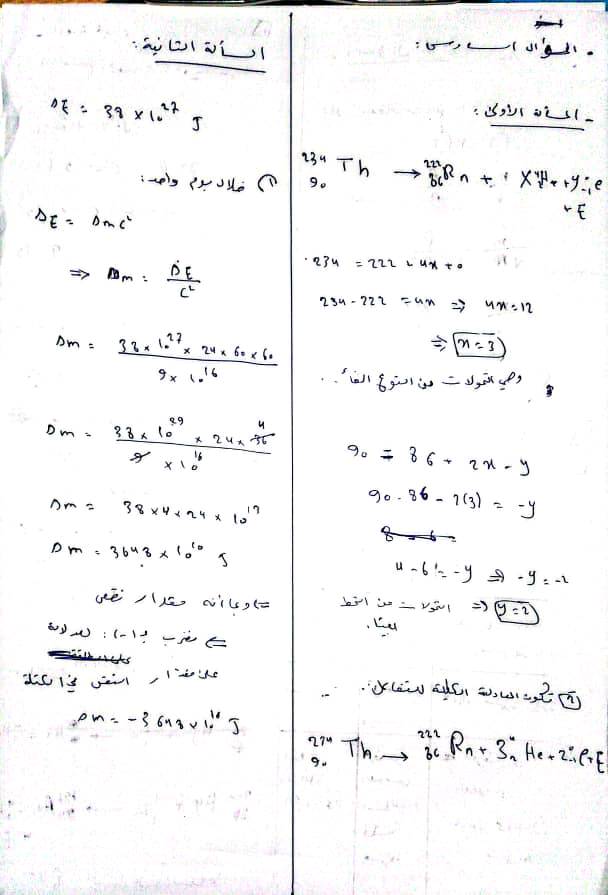 السؤال السادس:
- المسألة الأولى:
²³⁴₉₀Th → ²²²₈₆Rn + x⁴₂He + y⁰₋₁e
+ E
234 = 222 + 4x + 0
234 - 222 = 4x ⇒ 4x = 12
⇒ x = 3
وهي التحولات من النوع ألفا.
90 = 86 + 2x - y
90 - 86 - 2(3) = -y
4 - 6 = -y ⇒ -y = -2
⇒ y = 2 التحولات من النمط
بيتا.
2) تكون المعادلة الكلية للتفاعل:
²³⁴₉₀Th → ²²²₈₆Rn + 3⁴₂He + 2⁰₋₁e + E
المسألة الثانية:
ΔE = 38 × 10²⁷ J
1) خلال يوم واحد:
ΔE = Δmc²
⇒ Δm = ΔE / c²
Δm = 38 × 10²⁷ × 24 × 60 × 60 / 9 × 10¹⁶
Δm = 38 × 10²⁹ × 24 × 36 4 / 9 × 10¹⁶
Δm = 38 × 4 × 24 × 10¹³
Δm = 3648 × 10¹⁰ J
⇒ وبما أنه مقدار نقص
⇒ نضرب بـ (-1): للدلالة
على مقدار النقص في الكتلة
Δm = -3648 × 10¹⁰ J